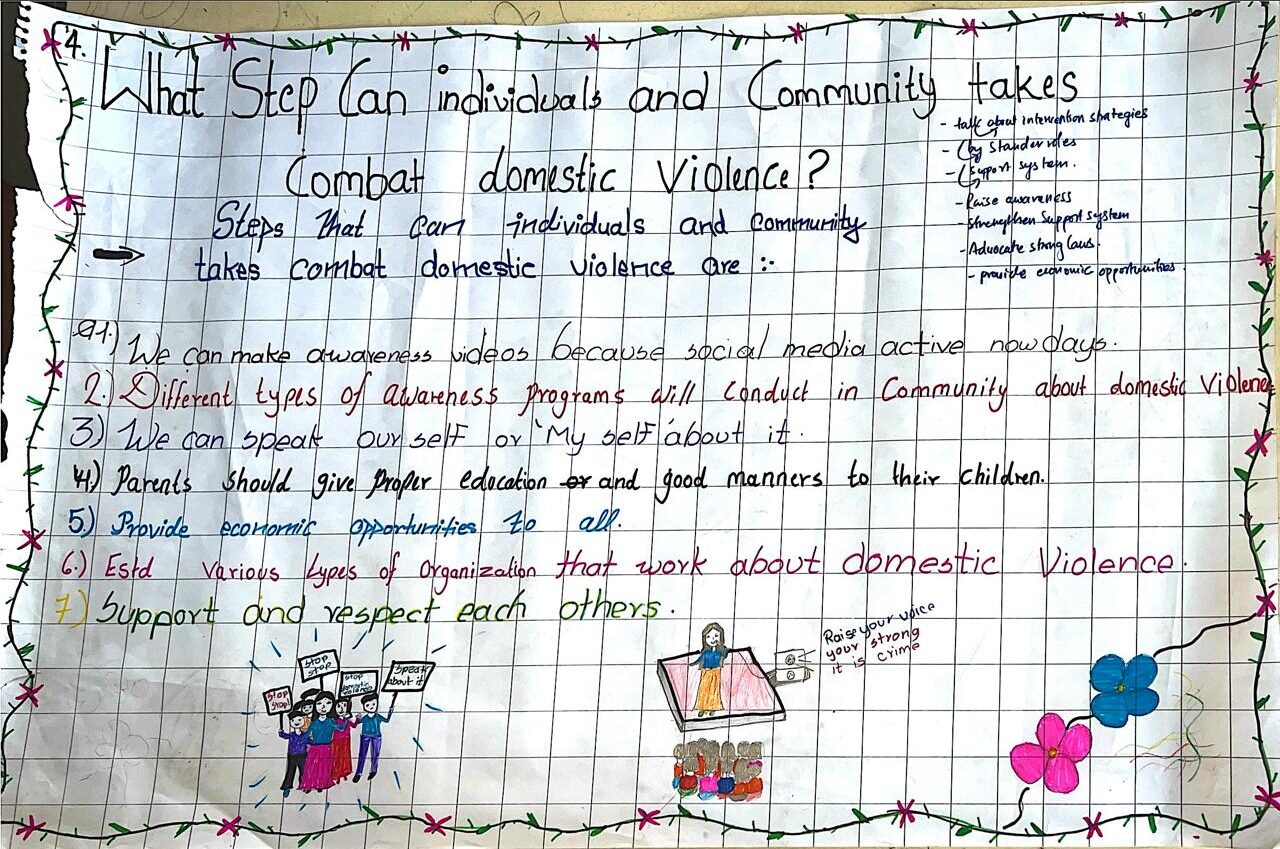 4.
What Step Can individuals and Community takes
Combat domestic Violence?
- talk about intervention strategies
- (by stander roles
- (support system.
- Raise awareness
- strengthen Support system
- Advocate strong laws.
- provide economic opportunities.
Steps that can individuals and community
takes combat domestic violence are :-
1.) We can make awareness videos because social media active nowdays.
2.) Different types of awareness programs will conduct in Community about domestic Violence
3) We can speak our self or "My self about it.
4.) Parents should give proper education or and good manners to their children.
5) Provide economic opportunities to all.
6.) Estd various types of organization that work about domestic Violence.
7) Support and respect each others.
Stop
Stop!
Stop
Stop
Stop
domestic
violence
Speak
about it
Raise your voice
your strong
it is crime